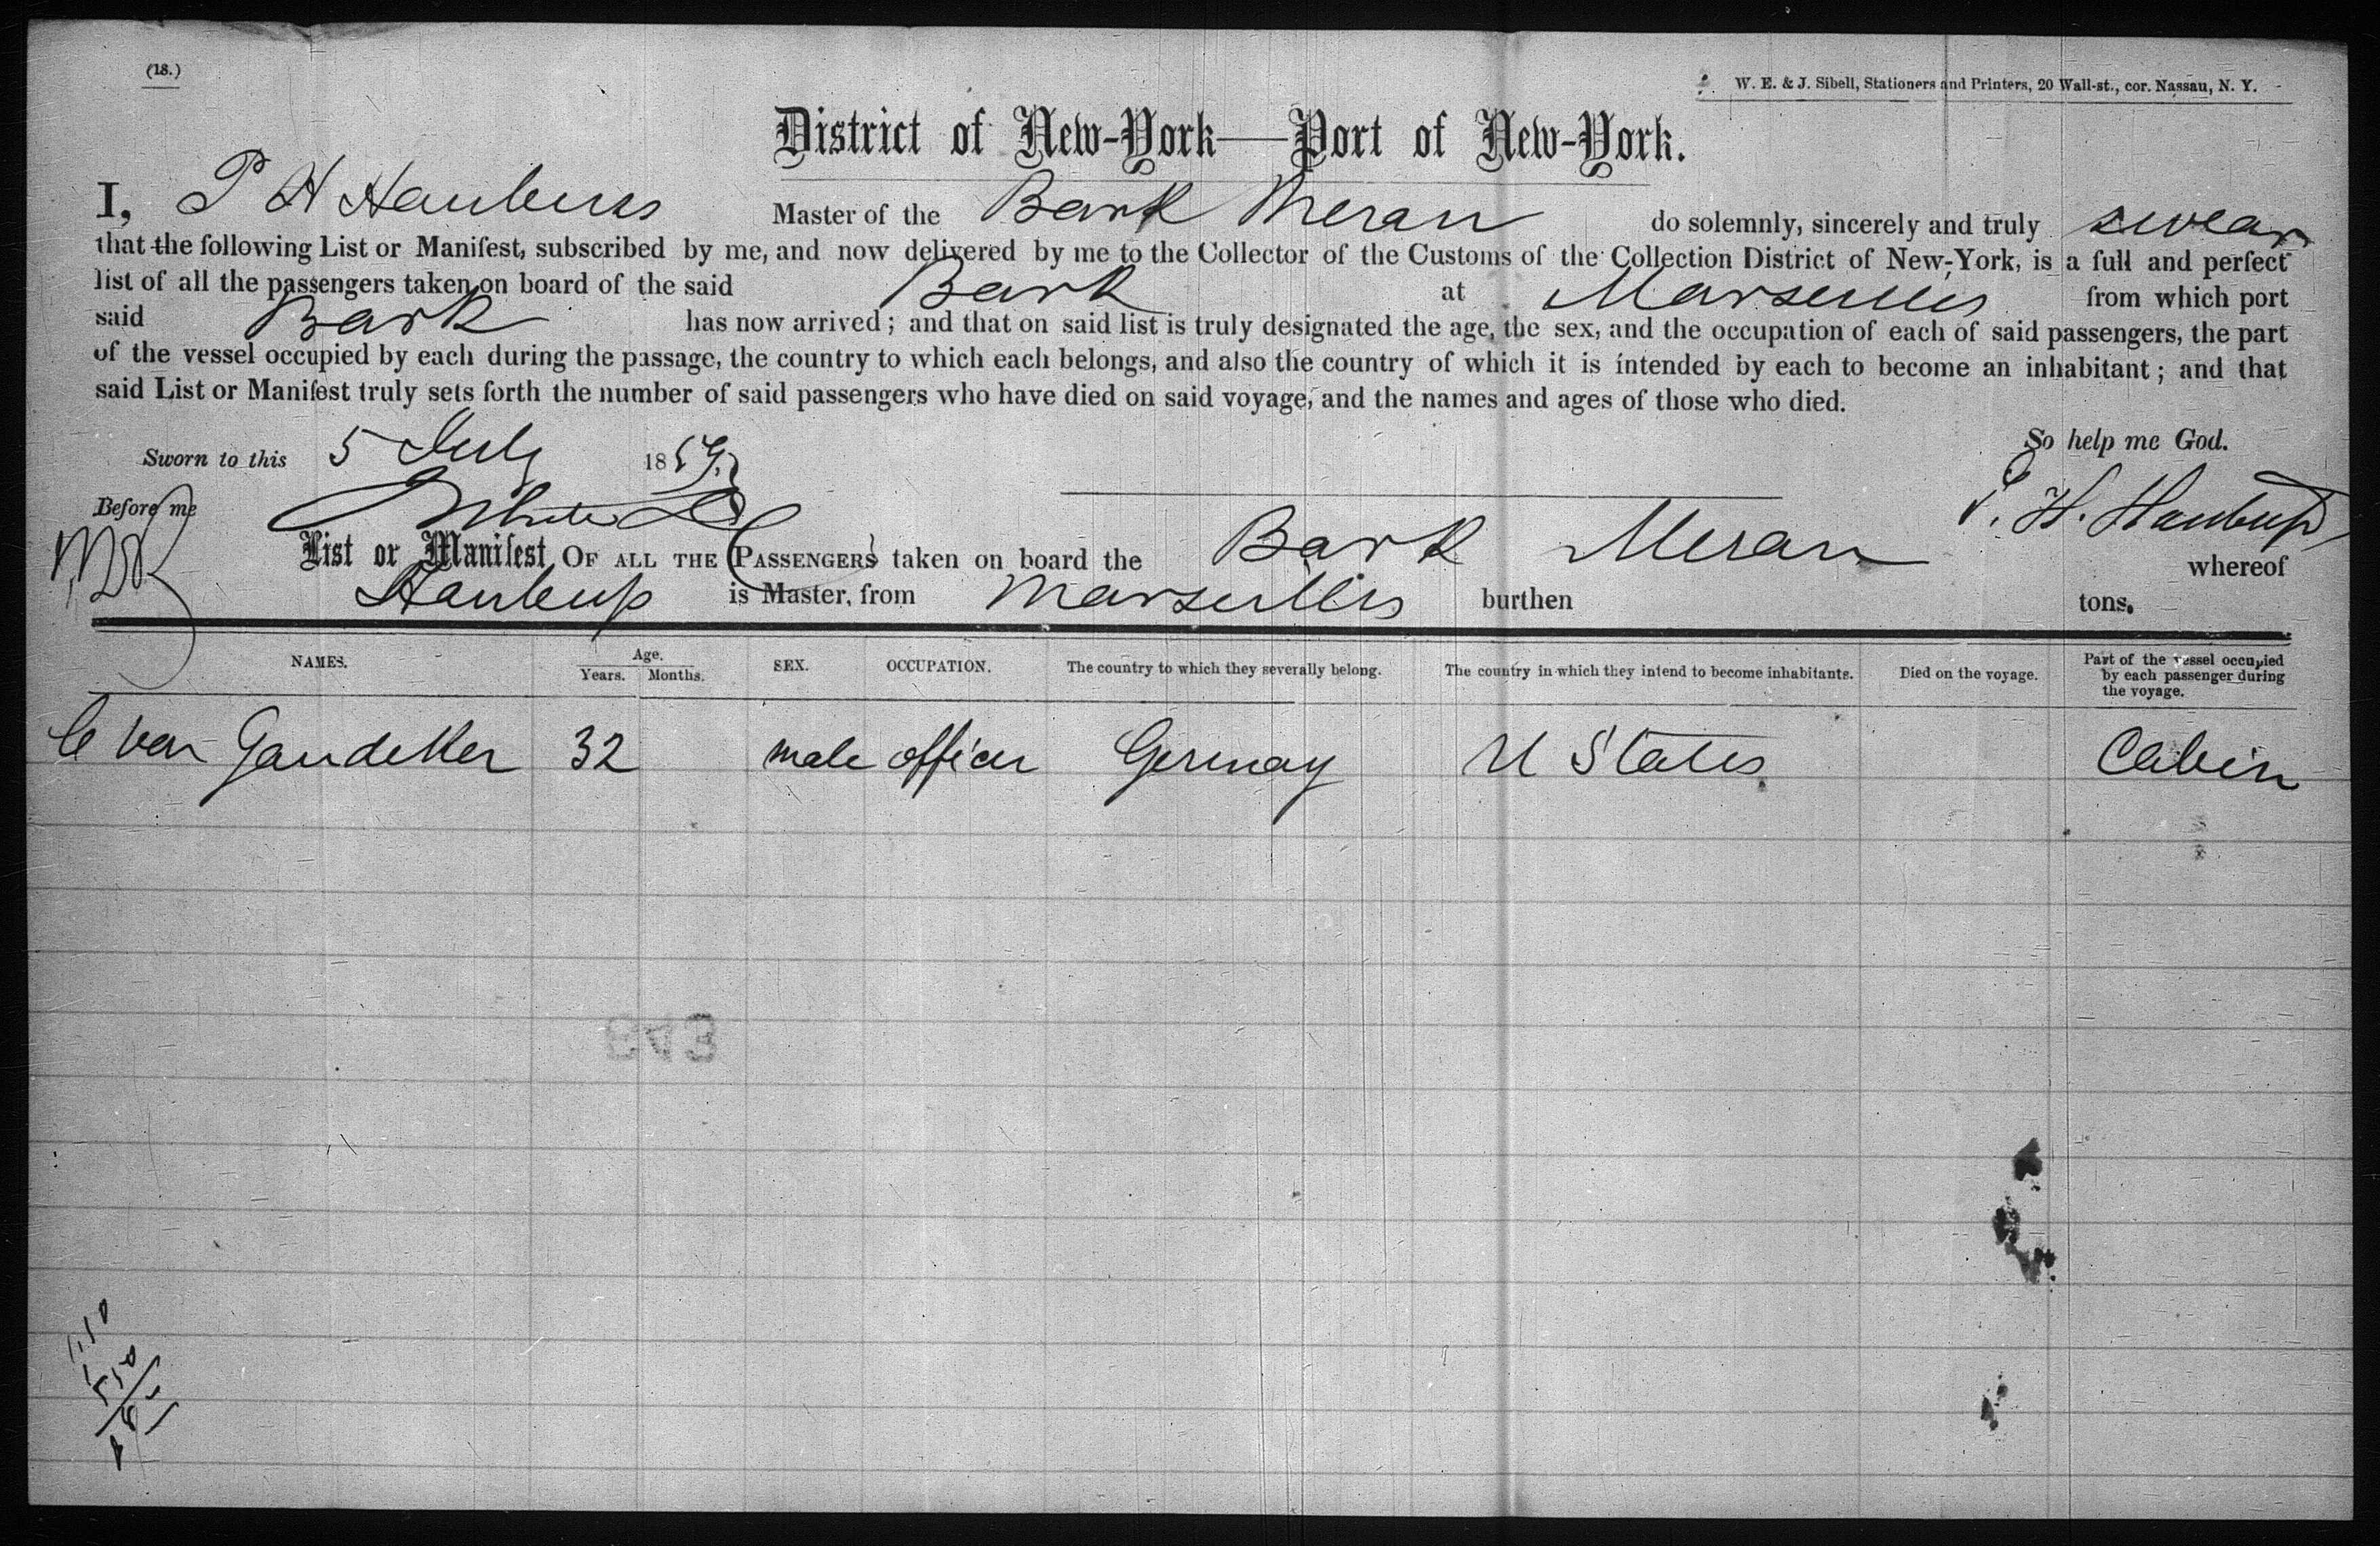 (18.)
W. E. & J. Sibell, Stationers and Printers, 20 Wall-st., cor. Nassau, N. Y.
District of New-York—Port of New-York.
I, P H Master of the Bark Meran do solemnly, sincerely and truly swear
that the following List or Manifest, subscribed by me, and now delivered by me to the Collector of the Customs of the Collection District of New-York, is a full and perfect
list of all the passengers taken on board of the said Bark at Marseilles from which port
said Bark has now arrived; and that on said list is truly designated the age, the sex, and the occupation of each of said passengers, the part
of the vessel occupied by each during the passage, the country to which each belongs, and also the country of which it is intended by each to become an inhabitant; and that
said List or Manifest truly sets forth the number of said passengers who have died on said voyage, and the names and ages of those who died.
So help me God.
Sworn to this 5 July 1859.
Before me
P. H.
List or Manifest OF ALL THE PASSENGERS taken on board the Bark Meran whereof
is Master, from Marseilles burthen tons.
NAMES. Age. Years. Months. SEX. OCCUPATION. The country to which they severally belong. The country in which they intend to become inhabitants. Died on the voyage. Part of the vessel occupied by each passenger during the voyage.
C van 32 male officer Germay U States Cabin
843